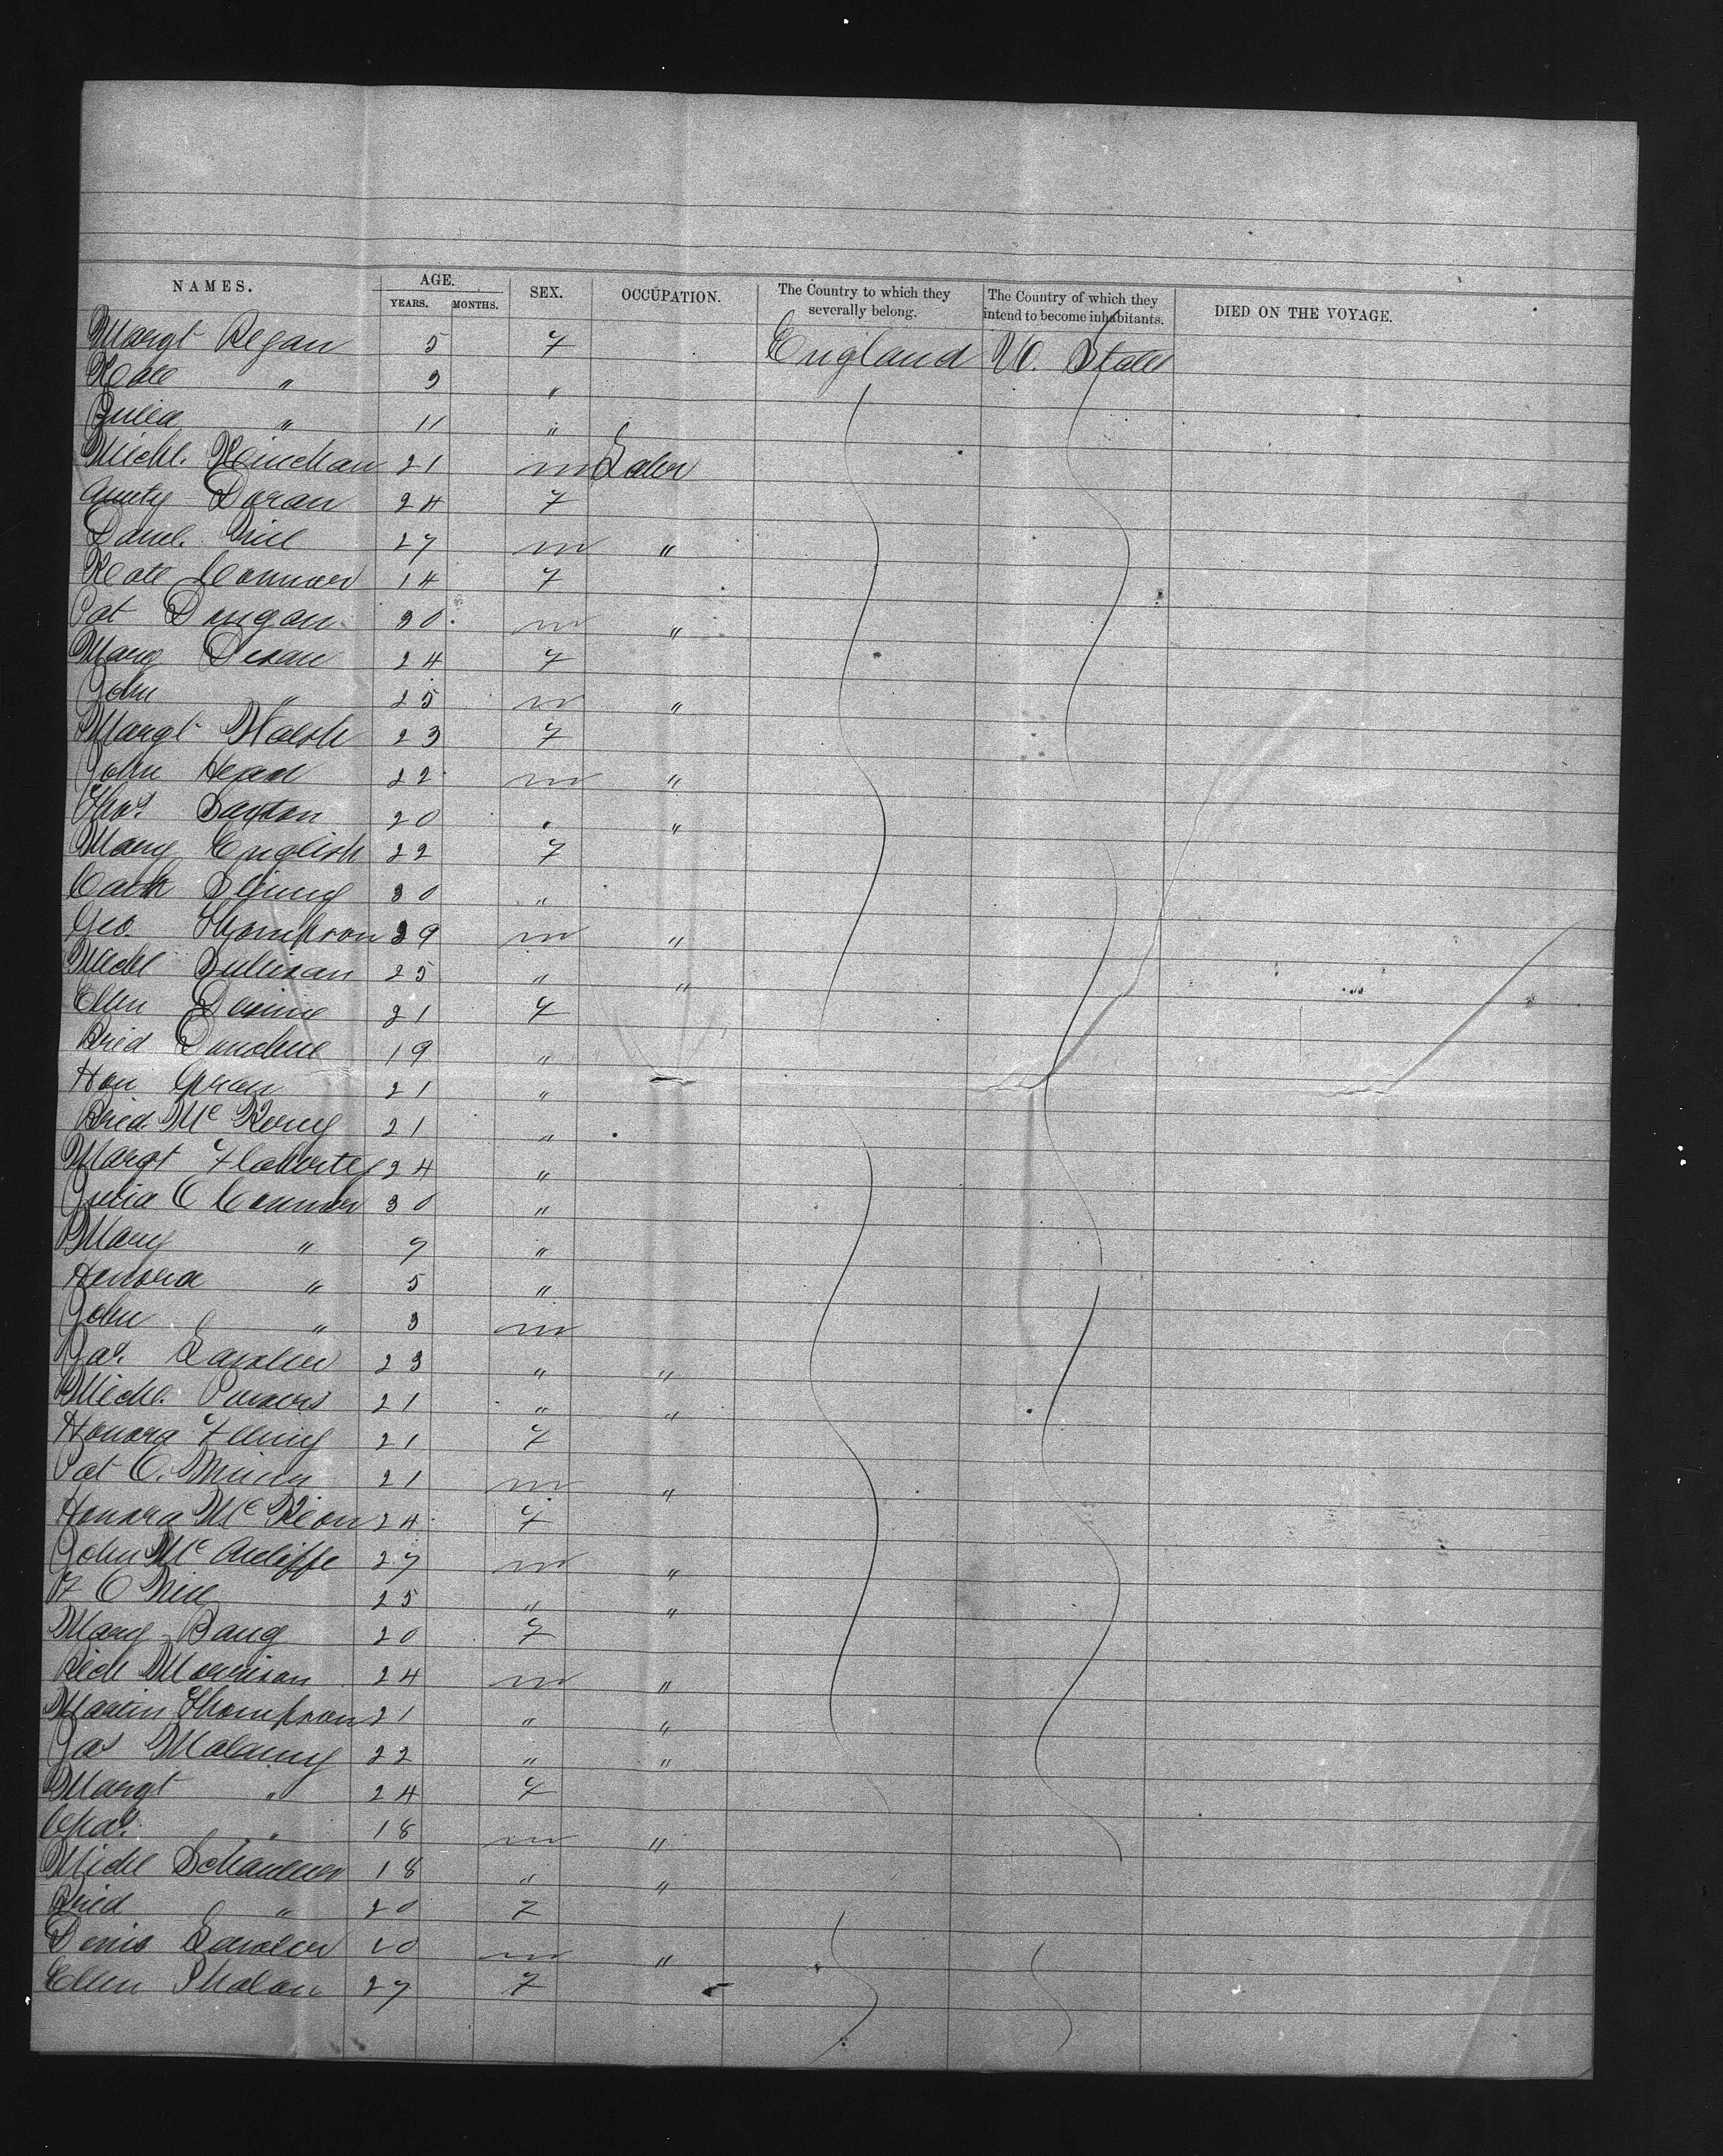 NAMES. AGE. YEARS. MONTHS. SEX. OCCUPATION. The Country to which they severally belong. The Country of which they intend to become inhabitants. DIED ON THE VOYAGE.
Margt Regan 5 F England U. States
Kate " 3 "
Julia " 11 "
Michl. 21 m Labr
Doran 24 F
Danl. Neil 27 m "
Kate Connor 14 F
Pat Dungan 30 m "
Mary 24 F
John " 25 m "
Margt Walsh 23 F
John Head 22 m "
Thos. Saxton 20 " "
Mary English 22 F
Cath 30 "
Geo. Thompson 39 m "
Michl Sullivan 25 " "
Ellen Devine 21 F
Brid 19 "
Hon 21 "
Brid. Mc 21 "
Margt Flaherty 24 "
Julia O Connor 30 "
Mary " 7 "
Honora " 5 "
John " 3 m
Jas. Lawler 23 " "
Michl. Powers 21 " "
Honora 21 F
Pat O. 21 m "
Honora Mc Keon 24 F
John Mc Auliffe 27 m "
F O Neil 25 " "
Mary 20 F
Rich Morrison 24 m "
Martin Thompson 21 " "
Jas 22 " "
Margt " 24 F
Chas. " 18 m "
Michl 18 " "
Brid " 20 F
Denis Lawler 20 m "
Ellen Phalan 27 F